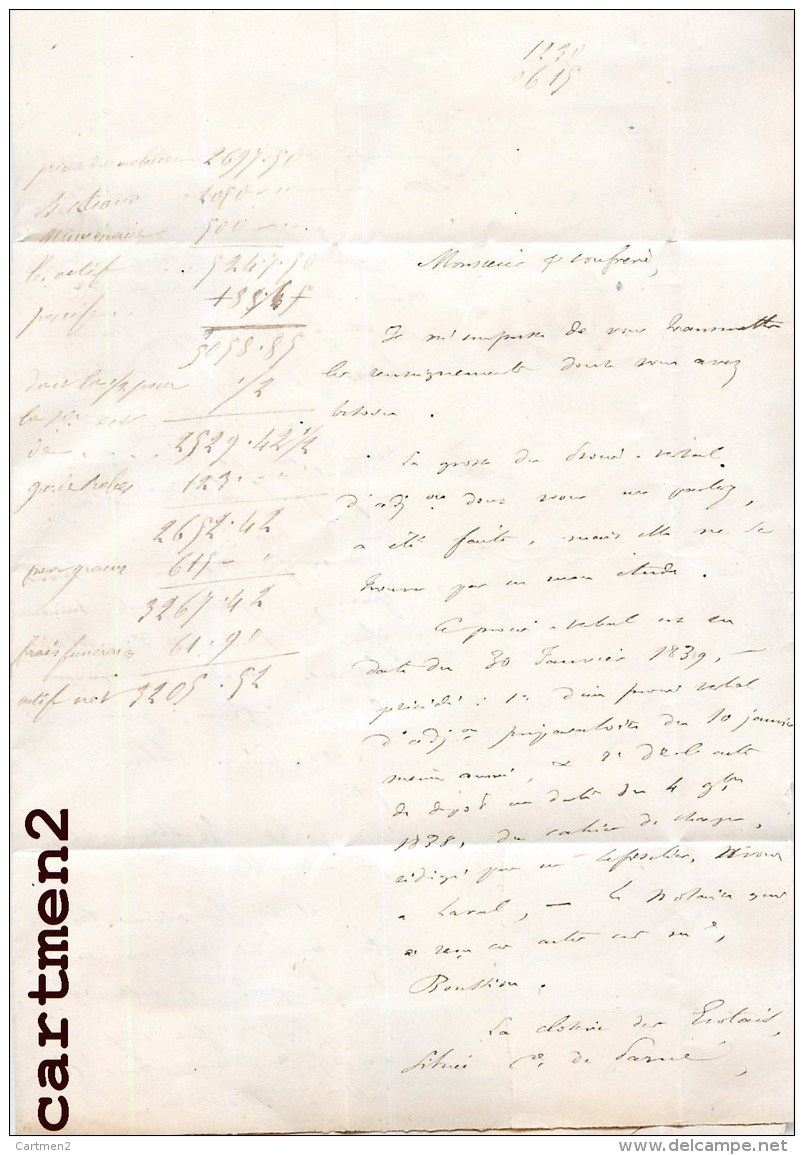 1230
615
2697.50
bestiaux 2050 - "
500 - "
l'actif 5247.50
5058.85
dont la 1/2 pour 1/2
la
de 2529.42 1/2
123 - "
2652.42
pour grains 615 - "
3267.42
frais funéraires 61.90
actif net 3205.52
Monsieur & confrère,
Je m'empresse de vous transmettre
les renseignements dont vous avez
besoin.
La grosse du procès-verbal
d'adj.on dont vous me parlez,
a été faite, mais elle ne se
trouve pas en mon étude.
Ce procès-verbal est en
date du 30 Janvier 1839, -
précédé : 1° d'un procès verbal
d'adj.on préparatoire du 10 janvier
même année, & 2° de l'acte
de dépôt en date du 4 9bre
1838, du cahier de charges,
rédigé par me avoué
à Laval, - le Notaire qui
a reçu ces actes est me
La closerie des
située Cne de
cartmen2
Cartmen2
www.delcampe.net